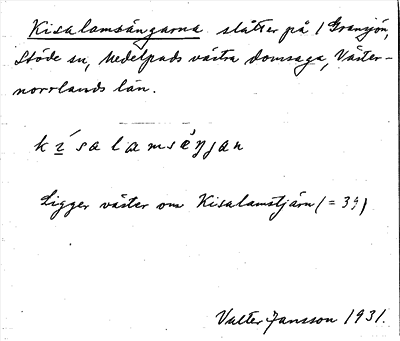 Kisalamsängarna slåtter på 1 Gransjön,
Stöde sn, Medelpads västra domsaga, Väster-
norrlands län.
Ligger väster om Kisalamstjärn (= 39)
Valter Jansson 1931.